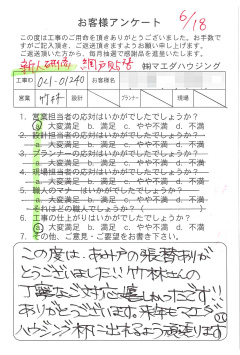 お客様アンケート
6/18
この度は工事のご用命を頂きありがとうございます。お手数で
すがご記入頂き、ご返送頂きますようお願い申し上げます。
ご返送頂いた方から、毎月抽選で感謝品を進呈いたします。
新人研修 網戸貼替 ㈱マエダハウジング
工事ID 041-01240 お客様名
営業 竹林 設計 プランナー 現場
1. 営業担当者の応対はいかがでしたでしょうか?
a. 大変満足 b. 満足 c. やや不満 d. 不満
2. 設計担当者の応対はいかがでしたでしょうか?
a. 大変満足 b. 満足 c. やや不満 d. 不満
3. プランナーの応対はいかがでしたでしょうか?
a. 大変満足 b. 満足 c. やや不満 d. 不満
4. 現場担当者の応対はいかがでしたでしょうか?
a. 大変満足 b. 満足 c. やや不満 d. 不満
5. 職人のマナーはいかがでしたでしょうか?
a. 大変満足 b. 満足 c. やや不満 d. 不満
・それはどの職人でしょうか?( )
6. 工事の仕上がりはいかがでしたでしょうか?
a. 大変満足 b. 満足 c. やや不満 d. 不満
7. その他、ご意見・ご要望をお書き下さい。
この度は、あみ戸の張替ありが
とうございました!!竹林さんの
丁寧なご対応嬉しかったです!!
ありがとうございます。来年もマエダ
ハウジング杯に出れるよう頑張ります